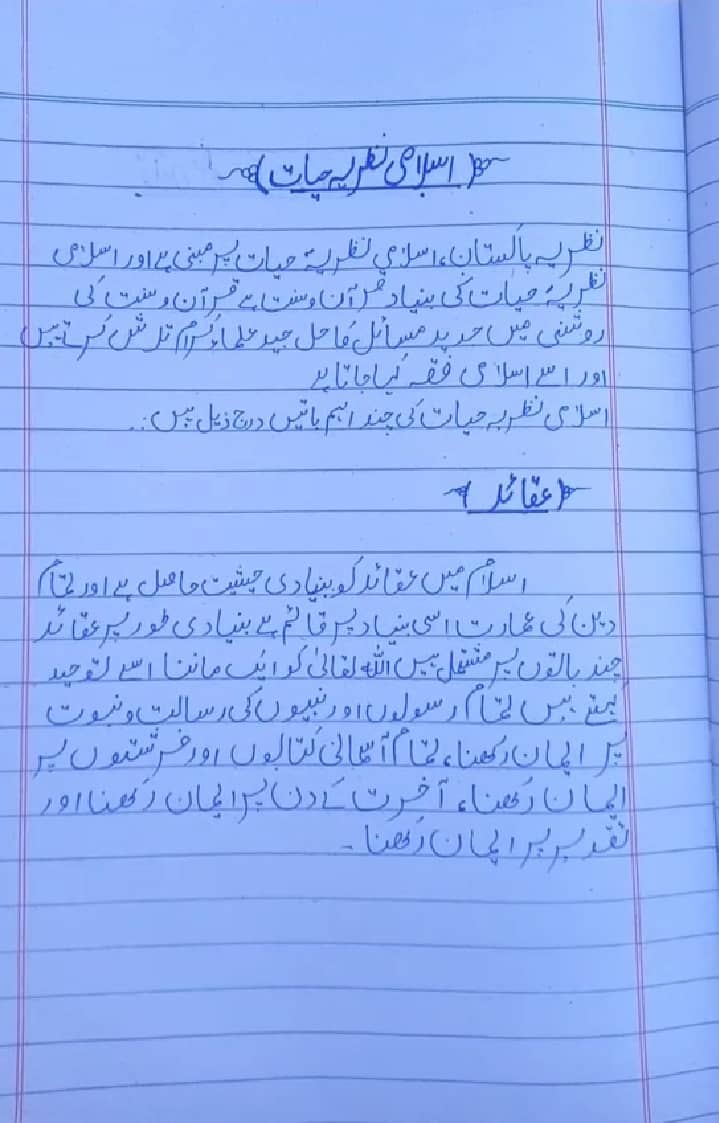 (اسلامی نظریہ حیات)
نظریہ پاکستان، اسلامی نظریۂ حیات پر مبنی ہے اور اسلامی
نظریۂ حیات کی بنیاد قرآن و سنت ہے قرآن و سنت کی
روشنی میں جدید مسائل کا حل جید علماء کرام تلاش کرتے ہیں
اور اسے اسلامی فقہ کہا جاتا ہے
اسلامی نظریہ حیات کی چند اہم باتیں درج ذیل ہیں:.
(عقائد)
اسلام میں عقائد کو بنیادی حیثیت حاصل ہے اور تمام
دین کی عمارت اسی بنیاد پر قائم ہے بنیادی طور پر عقائد
چند باتوں پر مشتمل ہیں اللہ تعالیٰ کو ایک ماننا اسے توحید
کہتے ہیں تمام رسولوں اور نبیوں کی رسالت و نبوت
پر ایمان رکھنا، تمام آسمانی کتابوں اور فرشتوں پر
ایمان رکھنا، آخرت کے دن پر ایمان رکھنا اور
تقدیر پر ایمان رکھنا۔